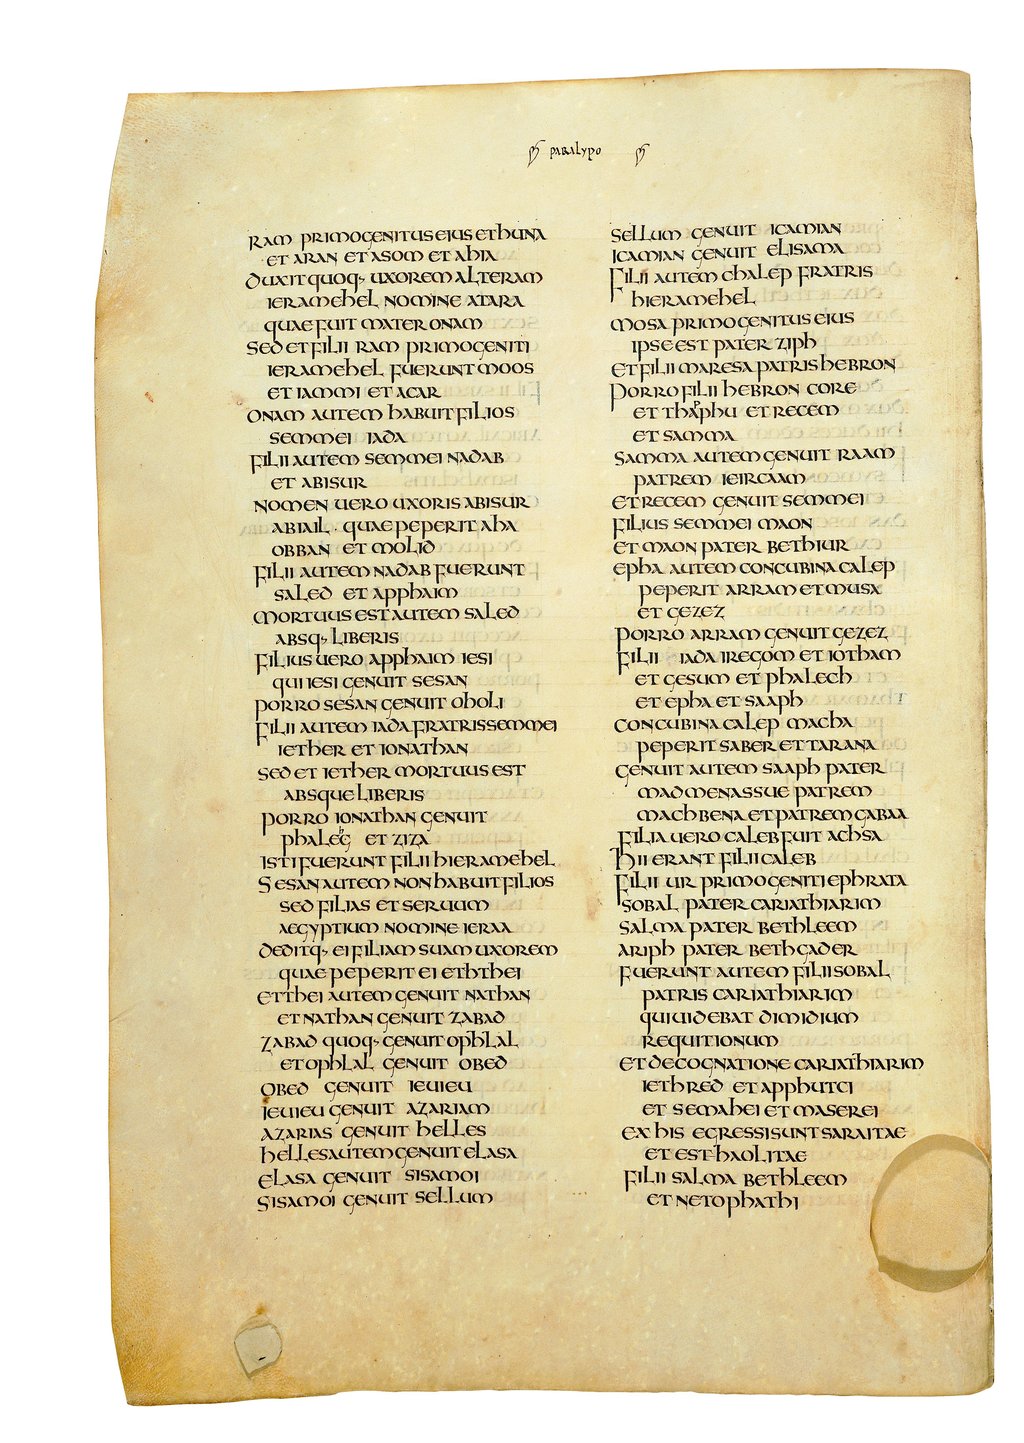 paralypo
ram primogenitus eius et huna
et aran et asom et ahia
duxit quoq, uxorem alteram
ieramehel nomine atara
quae fuit mater onam
sed et filii ram primogeniti
ieramehel fuerunt moos
et iammi et acar
onam autem habuit filios
semmei iada
filii autem semmei nadab
et abisur
nomen uero uxoris abisur
abiail · quae peperit aha
obban et molid
filii autem nadab fuerunt
saled et apphaim
mortuus est autem saled
absq, liberis
filius uero apphaim iesi
qui iesi genuit sesan
porro sesan genuit oholi
filii autem iada fratris semmei
iether et ionathan
sed et iether mortuus est
absque liberis
porro ionathan genuit
phaleg et ziza
isti fuerunt filii hieramehel
sesan autem non habuit filios
sed filias et seruum
aegyptium nomine ieraa
deditq, ei filiam suam uxorem
quae peperit ei eththei
etthei autem genuit nathan
et nathan genuit zabad
zabad quoq, genuit ophlal
et ophlal genuit obed
obed genuit ieuieu
ieuieu genuit azariam
azarias genuit helles
helles autem genuit elasa
elasa genuit sisamoi
sisamoi genuit sellum
sellum genuit icamian
icamian genuit elisama
filii autem chalep fratris
hieramehel
mosa primogenitus eius
ipse est pater ziph
et filii maresa patris hebron
porro filii hebron core
et thapphu et recem
et samma
samma autem genuit raam
patrem ieircaam
et recem genuit semmei
filius semmei maon
et maon pater bethiur
epha autem concubina calep
peperit arram et musa
et gezez
porro arram genuit gezez
filii iada iregom et iotham
et gesum et phalech
et epha et saaph
concubina calep macha
peperit saber et tarana
genuit autem saaph pater
madmenas sue patrem
machbena et patrem gabaa
filia uero caleb fuit achsa
hii erant filii caleb
filii ur primogeniti ephrata
sobal pater cariathiarim
salma pater bethleem
ariph pater bethgader
fuerunt autem filii sobal
patris cariathiarim
qui uidebat dimidium
requitionum
et de cognatione cariathiarim
iethred et apphutei
et semahei et maserei
ex his egressi sunt saraitae
et esthaolitae
filii salma bethleem
et netophathi